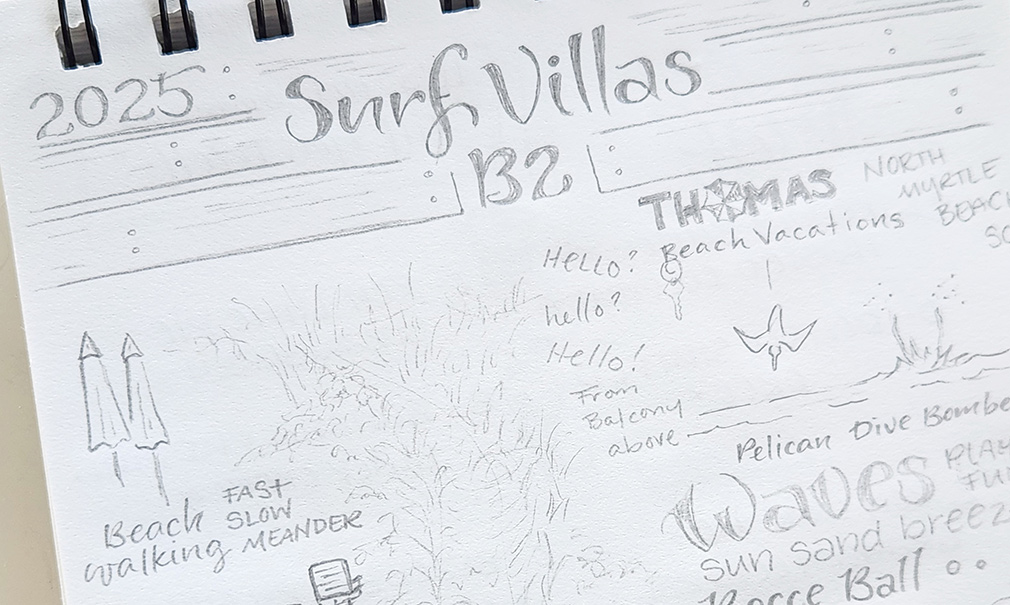 2025: Surf Villas
B2
THOMAS
Beach Vacations
NORTH
MYRTLE
BEACH
SC
Hello?
hello?
Hello!
From
Balcony
above
Pelican Dive Bombe
Waves
PLAY
FU
sun sand breez
Bocce Ball
Beach
walking
FAST
SLOW
MEANDER